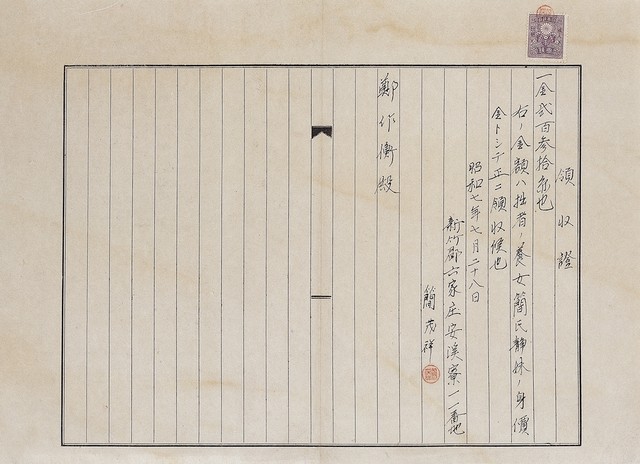 領収證
一金弐百参拾円也
右ノ金額ハ拙者ノ養女簡氏静妹ノ身價
金トシテ正ニ領収候也
昭和七年七月二十八日
新竹郡六家庄安溪寮一一番地
簡茂祥
鄭作衡殿